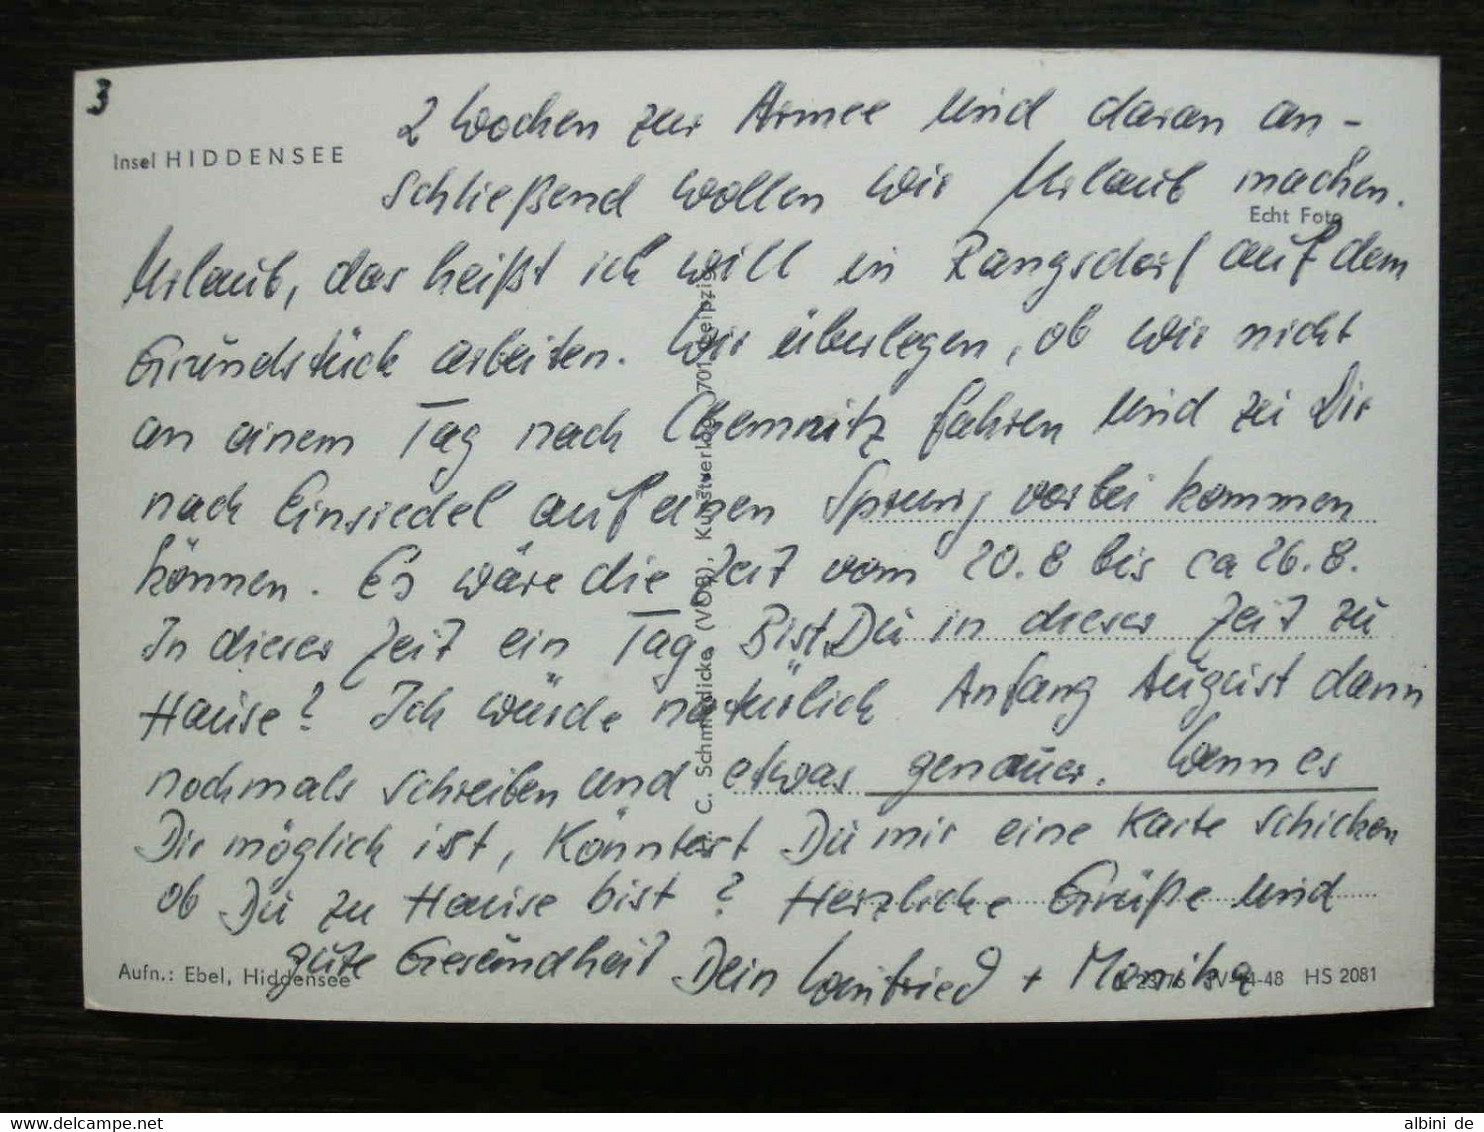 3
2 Wochen zur Armee und daran an-
Insel HIDDENSEE
schließend wollen wir Urlaub machen.
Echt Foto
Urlaub, das heißt ich will in Rangsdorf auf dem
Grundstück arbeiten. Wir überlegen, ob wir nicht
an einem Tag nach Chemnitz fahren und zu Dir
nach Einsiedel auf einen Sprung vorbei kommen
können. Es wäre die Zeit vom 20.8 bis ca 26.8.
In dieser Zeit ein Tag. Bist Du in dieser Zeit zu
Hause? Ich würde natürlich Anfang August dann
nochmals schreiben und etwas genauer. Wenn es
Dir möglich ist, Könntest Du mir eine Karte schicken
ob Du zu Hause bist? Herzliche Grüße und
gute Gesundheit Dein Winfried + Monika
Aufn.: Ebel, Hiddensee
HS 2081
C. Schmiedicke (VOB), Kunstverlag, 701 Leipzig
albini de